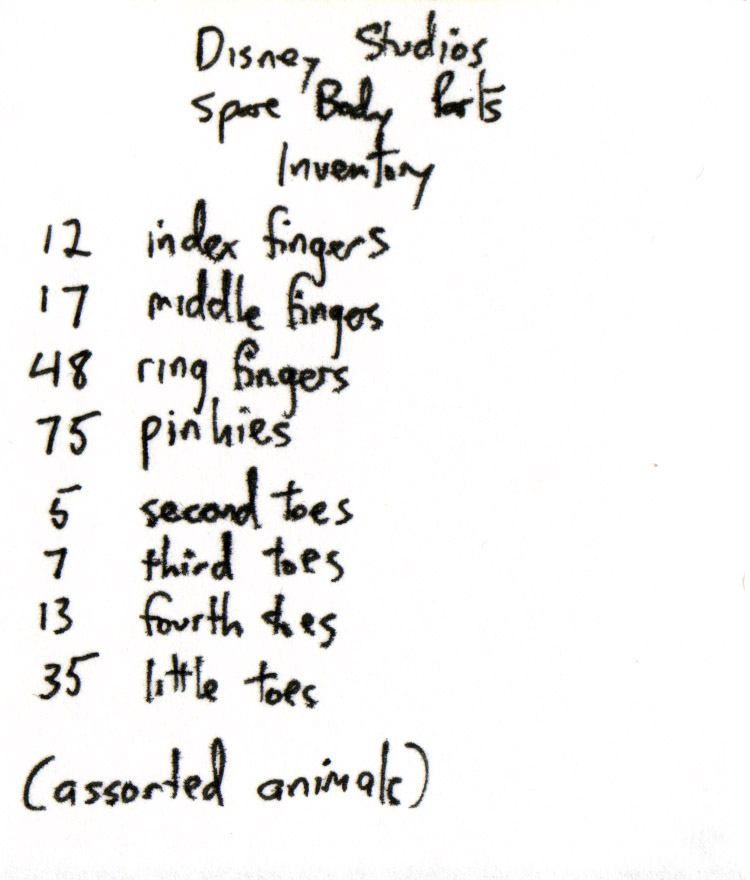 Disney Studios
Spare Body Parts
Inventory
12 index fingers
17 middle fingers
48 ring fingers
75 pinkies
5 second toes
7 third toes
13 fourth toes
35 little toes
(assorted animals)